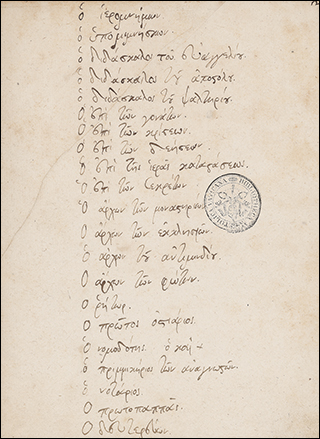 ὁ ἱερομνήμων.
ὁ ὑπομιμνήσκων.
ὁ διδάσκαλος τοῦ εὐαγγελίου.
ὁ διδάσκαλος τοῦ ἀποστόλου.
ὁ διδάσκαλος τοῦ ψαλτηρίου.
ὁ ἐπὶ τῶν γονάτων.
ὁ ἐπὶ τῶν κρίσεων.
ὁ ἐπὶ τῶν δεήσεων.
ὁ ἐπὶ τῆς ἱερᾶς καταστάσεως.
ὁ ἐπὶ τῶν σεκρέτων.
ὁ ἄρχων τῶν μοναστηρίων.
ὁ ἄρχων τῶν ἐκκλησιῶν.
ὁ ἄρχων τοῦ ἀντιμινσίου.
ὁ ἄρχων τῶν φώτων.
ὁ ῥήτωρ.
ὁ πρῶτος ὀστιάριος.
ὁ νομοδότης. ὁ
ὁ πριμμικήριος τῶν ἀναγνωστῶν.
ὁ νοτάριος.
ὁ πρωτοπαππᾶς.
ὁ δευτερεύων.